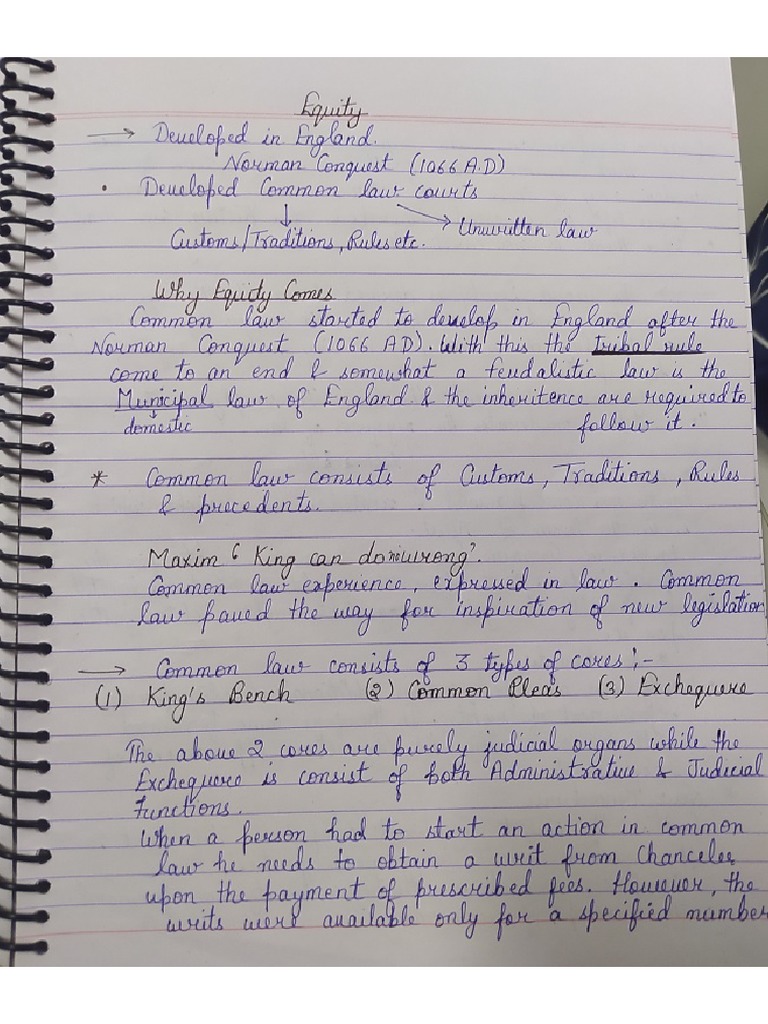 Equity
→ Developed in England.
Norman Conquest (1066 A.D)
• Developed Common law courts
↓ → Unwritten law
Customs/Traditions, Rules etc.
Why Equity Comes
Common law started to develop in England after the
Norman Conquest (1066 AD). With this the tribal rule
come to an end & somewhat a feudalistic law is the
Municipal law of England & the inheritence are required to
domestic follow it.
* Common law consists of Customs, Traditions, Rules
& precedents.
Maxim "King can do no wrong".
Common law experience, expressed in law. Common
law paved the way for inspiration of new legislation
→ Common law consists of 3 types of cores :-
(1) King's Bench (2) Common Pleas (3) Exchequere
The above 2 cores are purely judicial organs while the
Exchequere is consist of both Administrative & Judicial
Functions.
When a person had to start an action in common
law he needs to obtain a writ from Chanceler
upon the payment of prescribed fees. However, the
writs were available only for a specified number